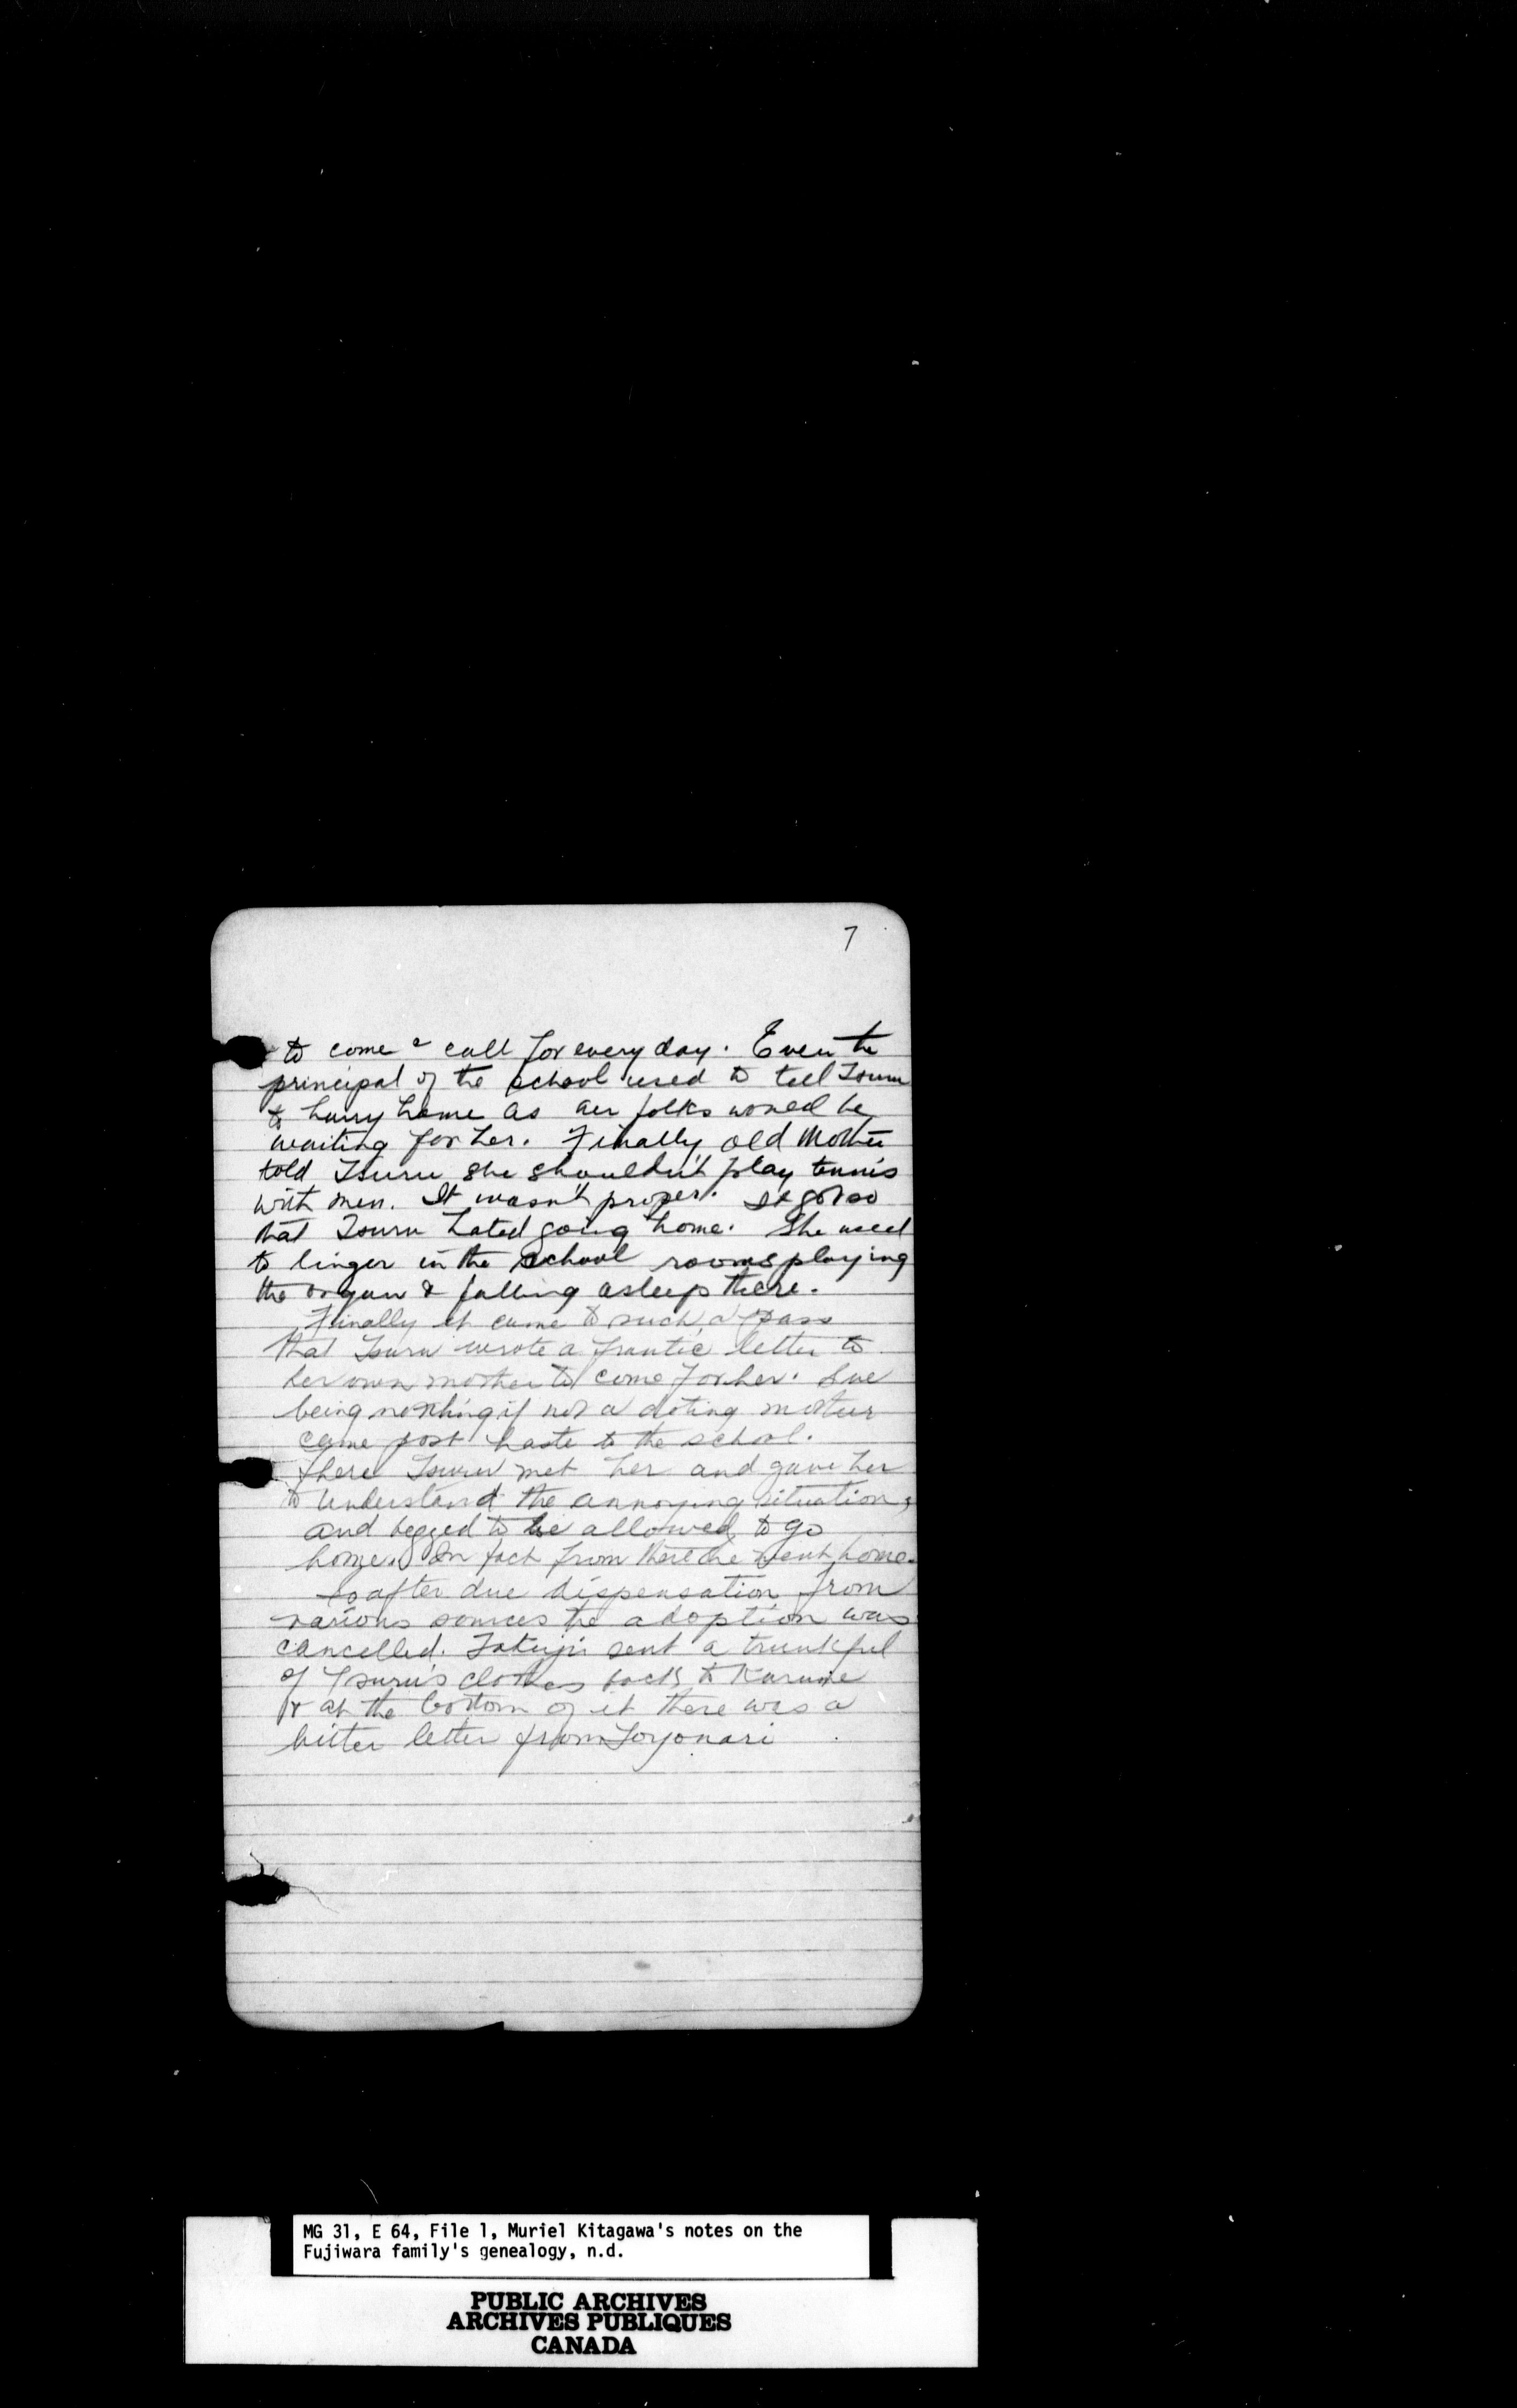 7
to come & call for every day. Even the
principal of the school used to tell Tsuru
to hurry home as her folks would be
waiting for her. Finally old Mother
told Tsuru she shouldn't play tennis
with men. It wasn't proper. It got so
that Tsuru hated going home. She used
to linger in the school rooms playing
the organ & falling asleep there.
Finally it came to such a pass
that Tsuru wrote a frantic letter to
her own mother to come for her. She
being nothing if not a doting mother
came post haste to the school.
There Tsuru met her and gave her
to understand the annoying situation,
and begged to be allowed to go
home. In fact from there she went home.
So after due dispensation from
various sources the adoption was
cancelled. Takuji sent a trunkful
of Tsuru's clothes back to Kurume
& at the bottom of it there was a
bitter letter from Toyonari
MG 31, E 64, File 1, Muriel Kitagawa's notes on the
Fujiwara family's genealogy, n.d.
PUBLIC ARCHIVES
ARCHIVES PUBLIQUES
CANADA